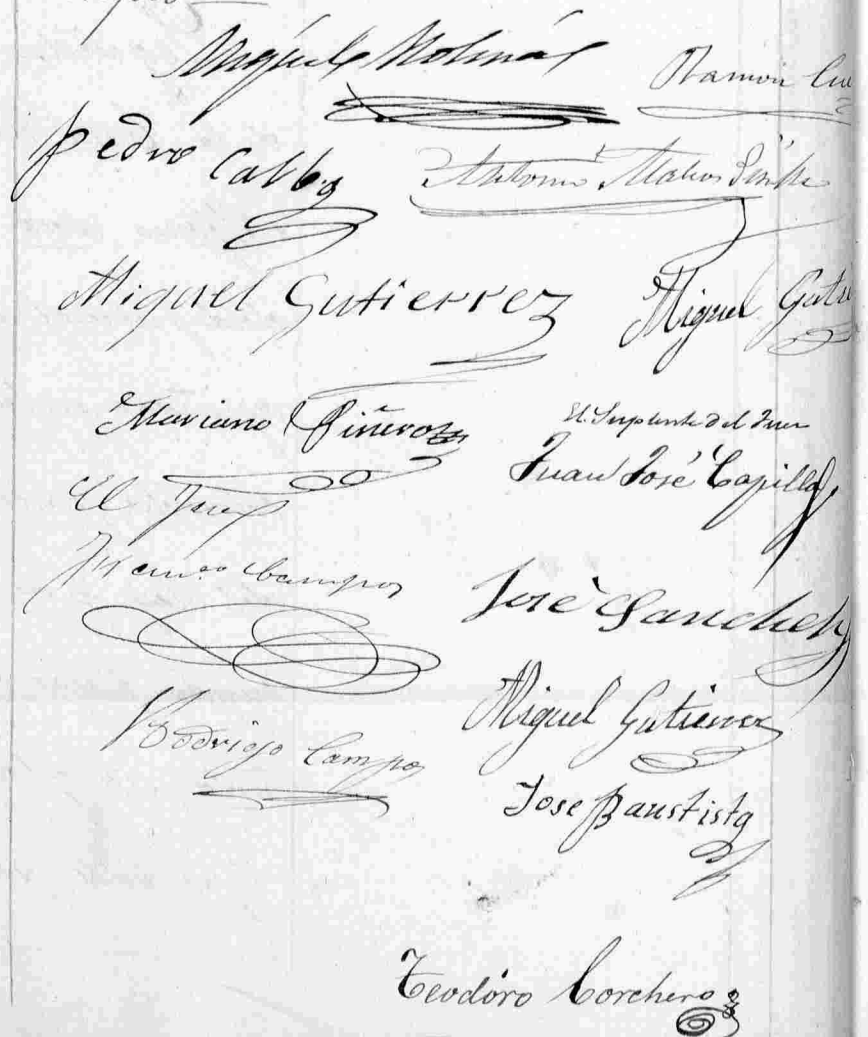 Miguel Molina
Ramón
Pedro Calbo
Antonio Mateos
Miguel Gutierrez
Miguel Gutie
Mariano Piñero
El Suplente del Juez
Juan José Capilla
El Juez
Franco Campos
José Sanchez
Miguel Gutierrez
Rodrigo Campos
Jose Baustista
Teodóro Corchero